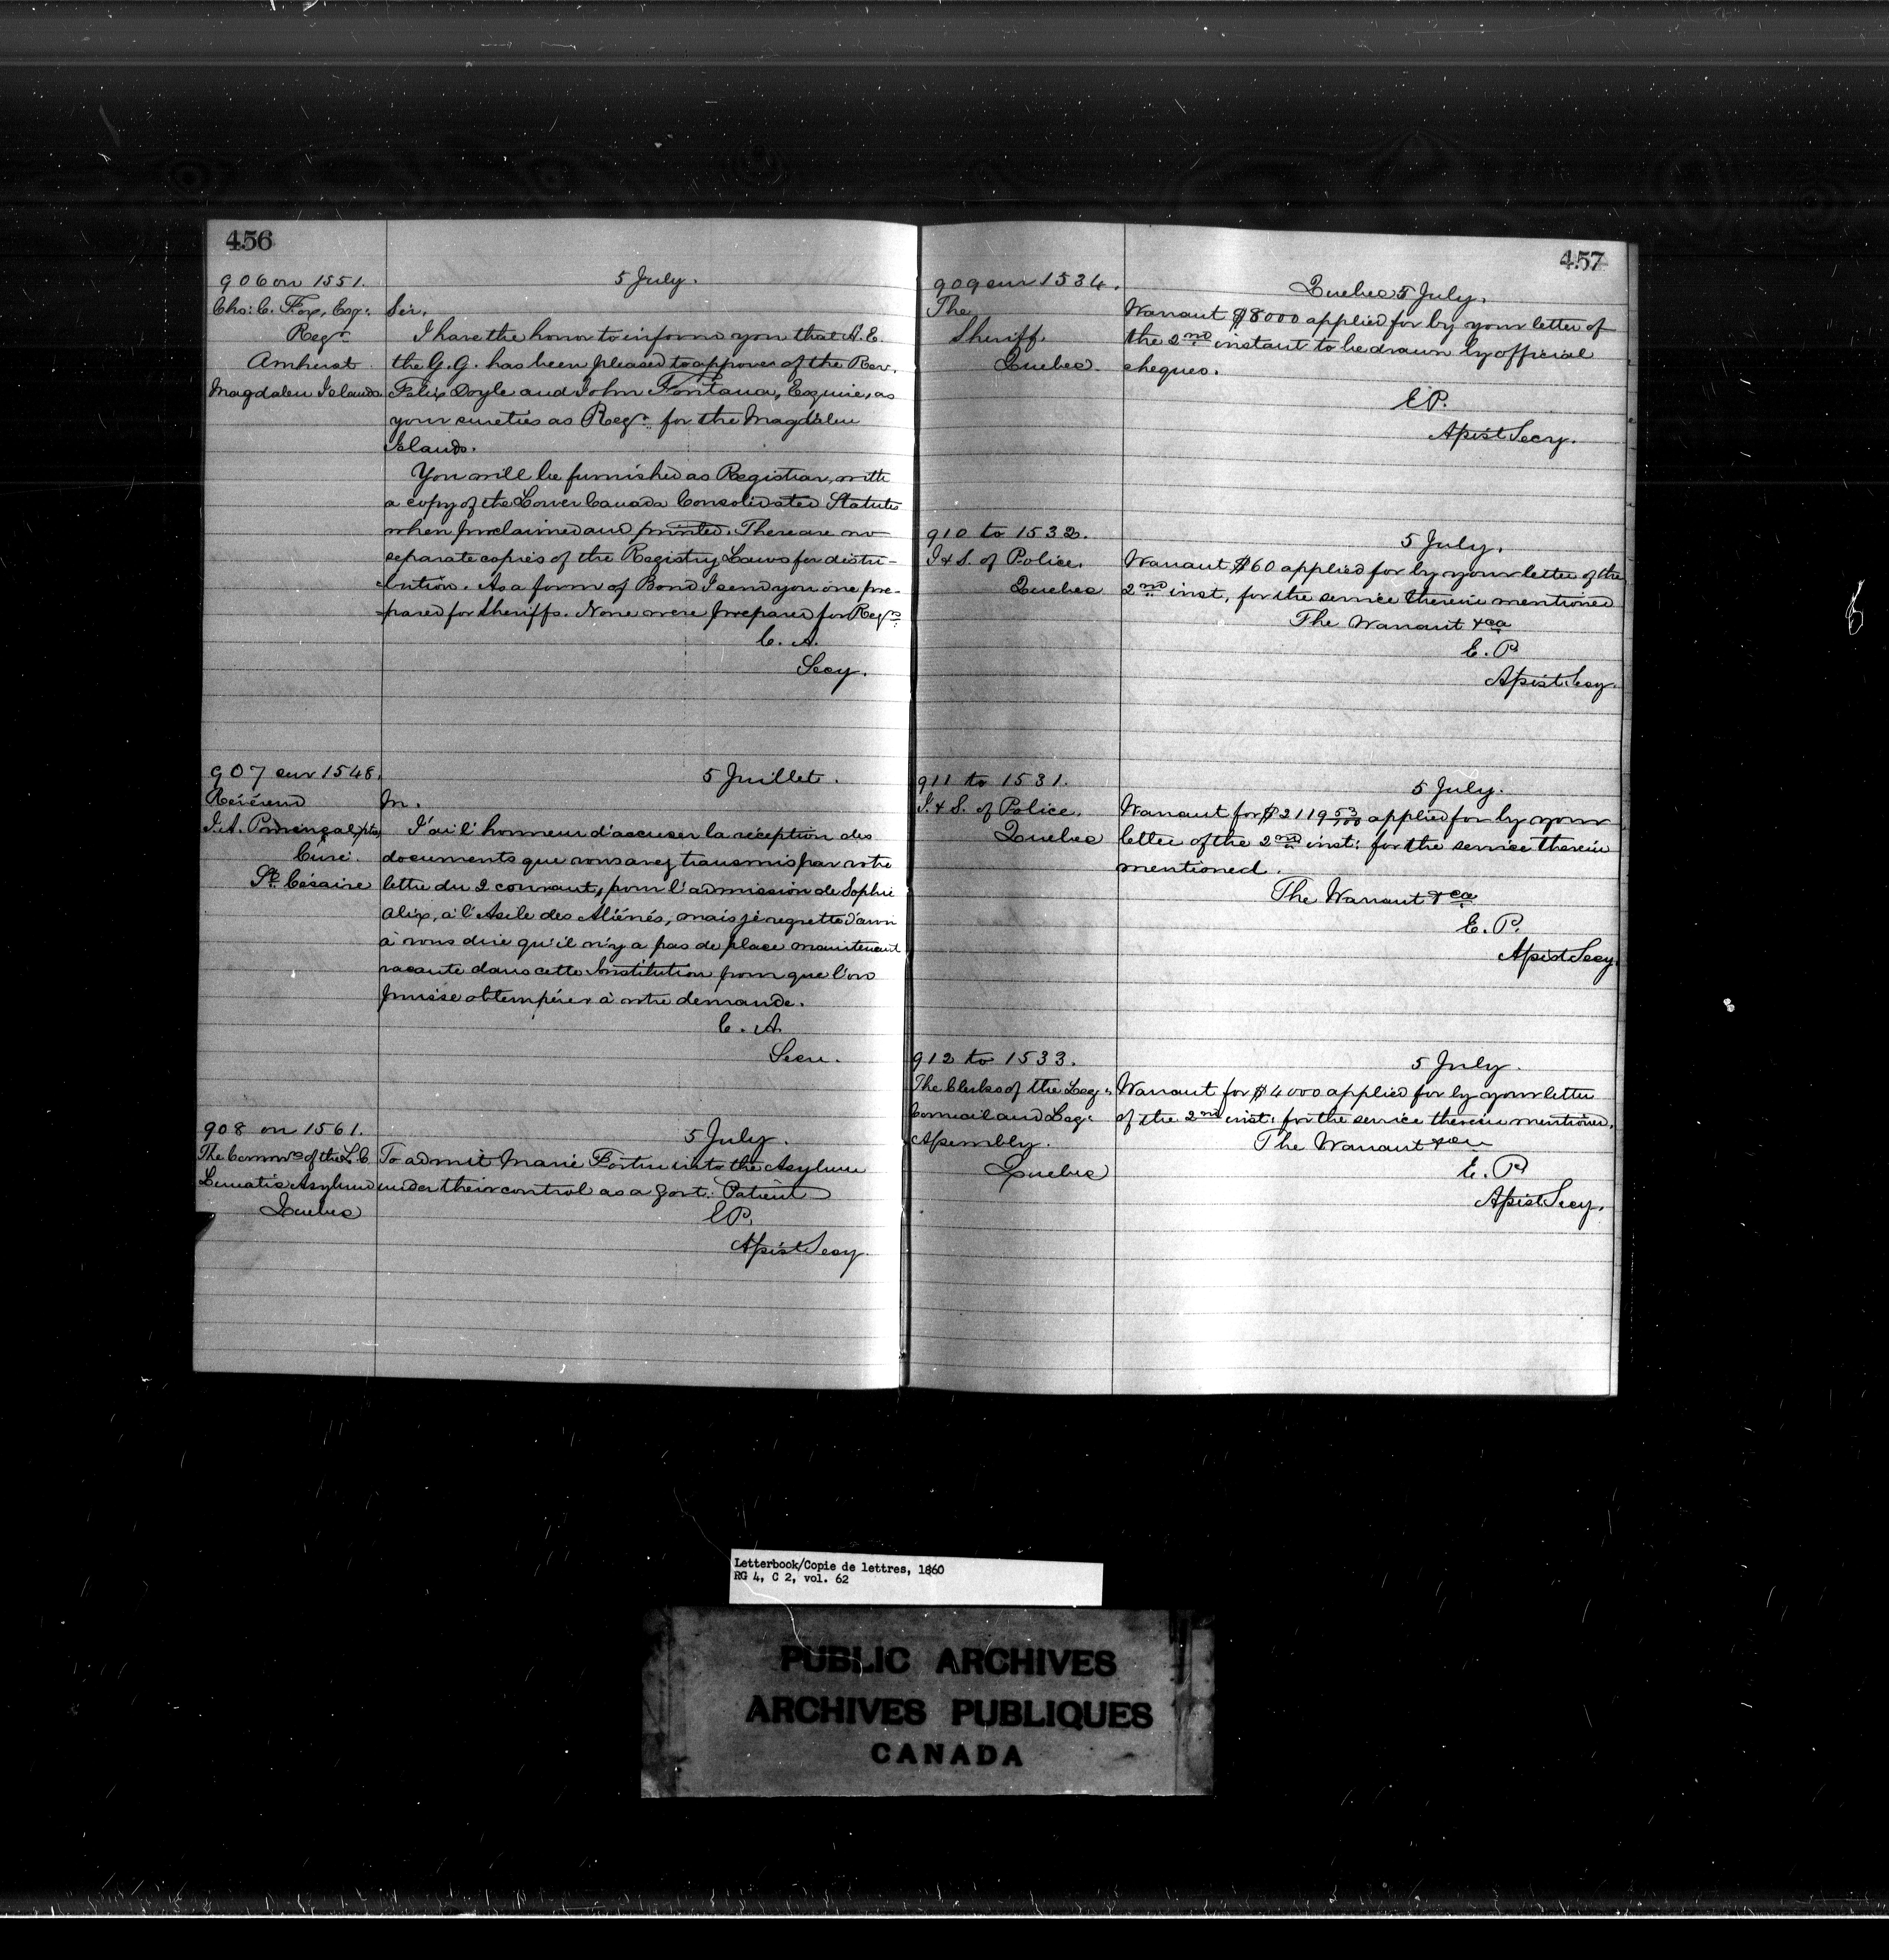 456
906 on 1551.
5 July.
Chs: C. Fox, Esqr:
Regr.
Amherst
Magdalen Islands.
Sir,
I have the honor to inform you that H. E.
the G. G. has been pleased to approve of the Rev.
Felix Doyle and John Fontana, Esquire, as
your sureties as Regr. for the Magdalen
Islands.
You will be furnished as Registrar, with
a copy of the Lower Canada Consolidated Statutes
when proclaimed and printed. There are no
separate copies of the Registry Laws for distri-
bution. As a form of Bond I send you one pre-
pared for Sheriffs. None were prepared for Regrs.
C. A.
Secy.
907 sur 1548.
5 Juillet.
Révérend
J. A. Provençal, ptre,
Curé.
St. Césaire
M.
J'ai l'honneur d'accuser la réception des
documents que vous avez transmis par votre
lettre du 2 courant, pour l'admission de Sophie
Alix, à l'Asile des Aliénés, mais je regrette d'avoir
à vous dire qu'il n'y a pas de place maintenant
vacante dans cette Institution pour que l'on
puisse obtempérer à votre demande.
C. A.
Secre.
908 on 1561.
5 July.
The Commrs of the L. C.
Lunatic Asylum
Quebec
To admit Marie Fortin into the Asylum
under their control as a govt. Patient
E P.
Asst Secy.
457
909 sur 1534.
Quebec 5 July.
The
Sheriff.
Quebec.
Warrant $8000 applied for by your letter of
the 2nd instant to be drawn by official
cheques.
E P.
Asst Secy.
910 to 1532.
5 July.
I & S. of Police.
Quebec
Warrant $60 applied for by your letter of the
2nd inst, for the service therein mentioned
The Warrant &ca
E. P.
Asst Secy.
911 to 1531.
5 July.
I. & S. of Police.
Quebec
Warrant for $2119 53/100 applied for by your
letter of the 2nd inst: for the service therein
mentioned.
The Warrant &ca
E. P.
Asst Secy.
912 to 1533.
5 July.
The Clerks of the Leg:
Council and Leg:
Assembly.
Quebec
Warrant for $4000 applied for by your letter
of the 2nd inst: for the service therein mentioned.
The Warrant &ca
E. P.
Asst Secy.
Letterbook/Copie de lettres, 1860
RG 4, C 2, vol. 62
PUBLIC ARCHIVES
ARCHIVES PUBLIQUES
CANADA